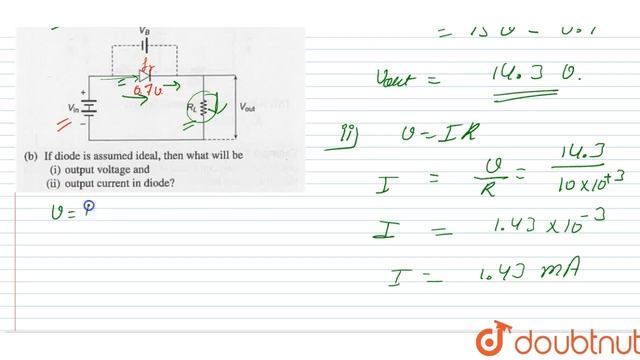 V_B
fr
0.7v
+
V_in
−
R_L
V_out
(b) If diode is assumed ideal, then what will be
(i) output voltage and
(ii) output current in diode?
V =
= 15 V − 0.7
Vout = 14.3 V.
ii) V = IR
I = V/R = 14.3/10×10^+3
I = 1.43 × 10^-3
I = 1.43 mA
doubtnut